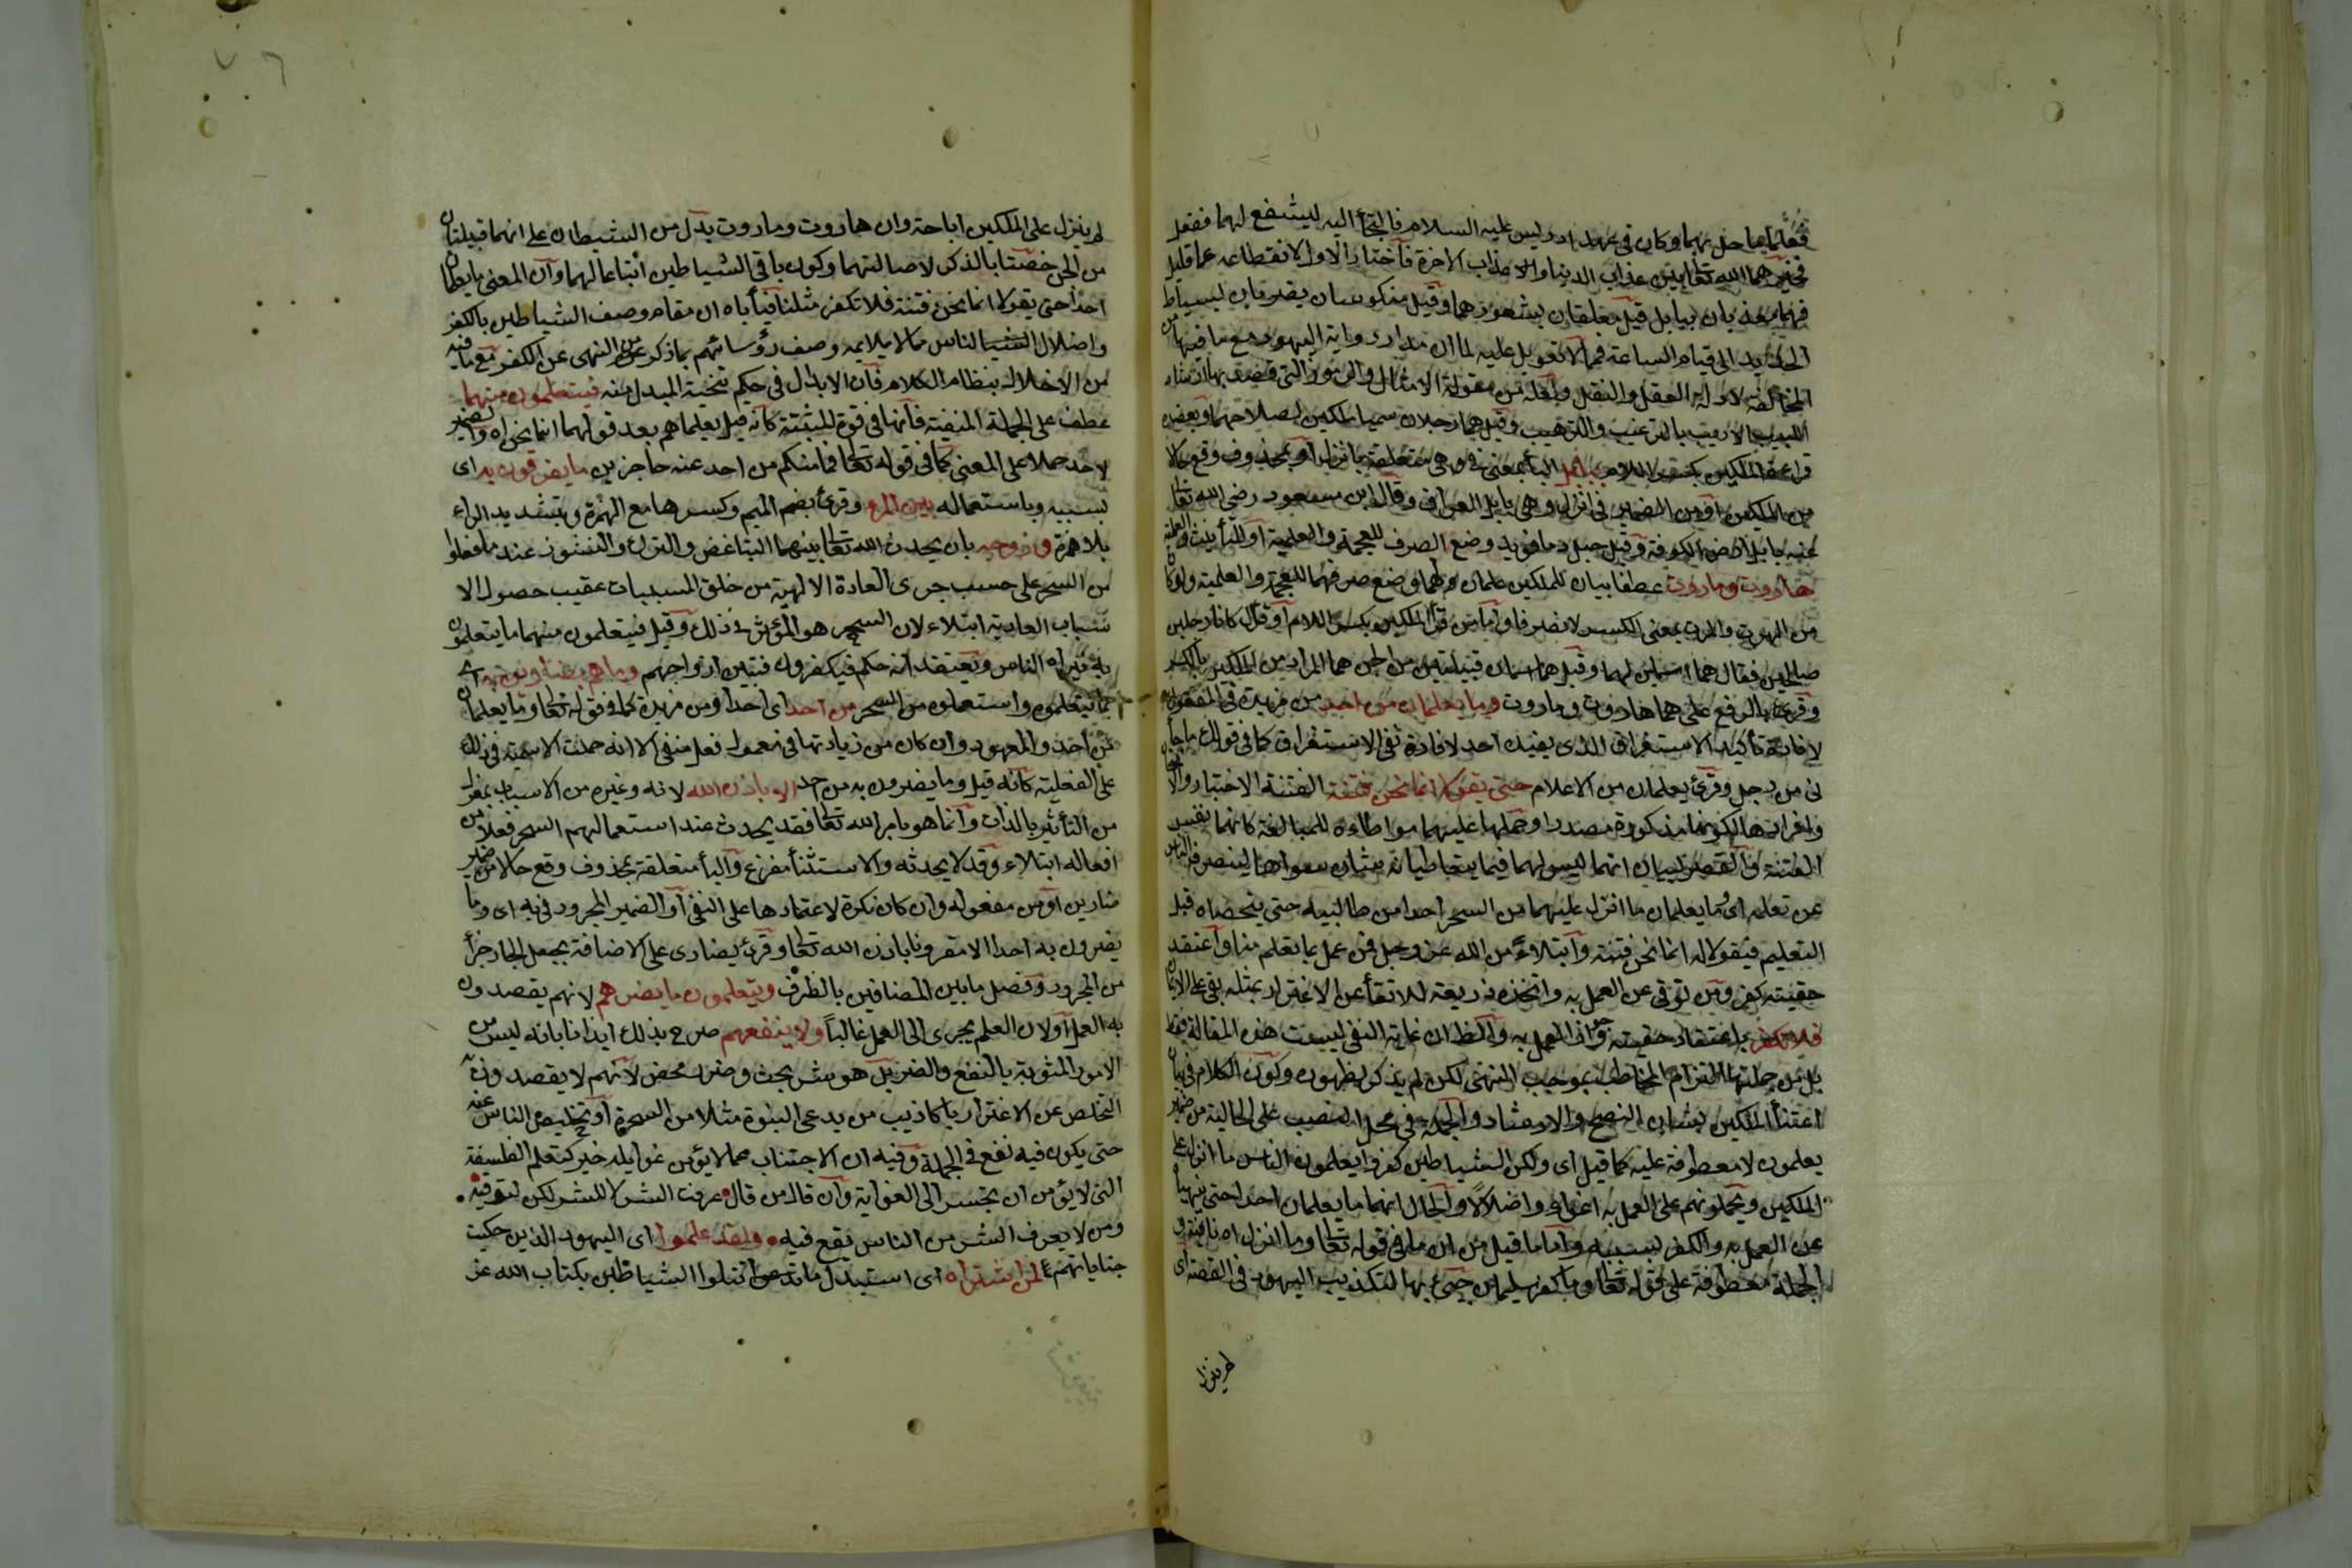 فعلما ما حل بهما وكان في عهد ادريس عليه السلام فالتجأ اليه ليشفع لهما ففعل
فخيرهما الله تعا بين عذاب الدنيا وعذاب الاخرة فاختارا الاول لانقطاعه عما قليل
فهما يعذبان ببابل قيل معلقان بشعورهما وقيل منكوسان يضربان بسياط
الحديد الى قيام الساعة فمما لا تعويل عليه لما ان مداره رواية اليهود مع ما فيها من
المخالفة لادلة العقل والنقل ولعله من مقولة الامثال والرموز التي قصد بها ارشاد
اللبيب الاريب بالترغيب والترهيب وقيل هما رجلان سميا ملكين لصلاحهما ويعضده
قراءة الملكين بكسر اللام ببابل الباء بمعنى في وهي متعلقة بانزل او بمحذوف وقع حالا
من الملكين او من الضمير في انزل وهي بابل العراق وقال ابن مسعود رضي الله تعا
عنه بابل ارض الكوفة وقيل جبل دماوند ومنع الصرف للعجمة والعلمية او للتأنيث والعلمية
هاروت وماروت عطف بيان للملكين علمان لهما ومنع صرفهما للعجمة والعلمية ولو كانا
من الهرت والمرت بمعنى الكسر لانصرفا واما من قرأ الملكين بكسر اللام او قال كانا رجلين
صالحين فقال هما اسمان لهما وقيل هما اسمان قبيلتين من الجن هما المراد من الملكين بالكسر
وقرئ بالرفع على هما هاروت وماروت وما يعلمان من احد من مزيدة في المفعول
لافادة تأكيد الاستغراق الذي يفيده احد لا لافادة نفس الاستغراق كما في قولك ما جاء
ني من رجل وقرئ يعلمان من الاعلام حتى يقولا انما نحن فتنة الفتنة الاختبار والامتحان
وافرادها لكونها مذكورة مصدرا وحملها عليهما مواطأة للمبالغة كانهما نفس
الفتنة والقصر لبيان انهما ليس لهما فيما يتعاطيانه شان سواها لينصرف الناس
عن تعلمه اى وما يعلمان ما انزل عليهما من السحر احدا من طالبيه حتى ينصحاه قبل
التعليم فيقولا له انما نحن فتنة وابتلاء من الله عز وجل فمن عمل بما تعلم منا واعتقد
حقيته كفر ومن توقى عن العمل به واتخذه ذريعة للاتقاء عن الاغترار بمثله بقي على الايمان
فلا تكفر باعتقاد حقيته وجواز العمل به والظ ان غاية النفي ليست هذه المقالة فقط
بل من جملتها التزام المخاطب بموجب النهي لكن لم يذكر لظهوره وكون الكلام في بيان
اعتناء الملكين بشان النصح والارشاد والجملة في محل النصب على الحالية من ضمير
يعلمون لا معطوفة عليه كما قيل اى ولكن الشياطين كفروا يعلمون الناس ما انزل على
الملكين ويحملونهم على العمل به اغواء واضلالا والحال انهما ما يعلمان احدا حتى ينهياه
عن العمل به والكفر بسببه واما ما قيل من ان ما في قوله تعا وما انزل اه نافية و
الجملة معطوفة على قوله تعا وما كفر سليمان جيئ بها لتكذيب اليهود في القصة اى
لم ينزل
٧٦
لم ينزل على الملكين اباحة وان هاروت وماروت بدل من الشيطان على انهما قبيلتان
من الجن خصتا بالذكر لاصالتهما وكون باقي الشياطين اتباعا لهما وان المعنى ما يعلمان
احدا حتى يقولا انما نحن فتنة فلا تكفر مثلنا فيأباه ان مقام وصف الشياطين بالكفر
واضلال الناس مما لا يلايمه وصف رؤسائهم بما ذكر من النهي عن الكفر مع ما فيه
من الاخلال بنظام الكلام فان الابدال في حكم تنحية المبدل منه فيتعلمون منهما
عطف على الجملة المنفية فانها في قوة المثبتة كانه قيل يعلمانهم بعد قولهما انما نحن اه والضمير
لاحد حملا على المعنى كما في قوله تعا فما منكم من احد عنه حاجزين ما يفرقون به اى
بسببه وباستعماله بين المرء وقرئ بضم الميم وكسرها مع الهمزة وبتشديد الراء
بلا همزة وزوجه بان يحدث الله تعا بينهما التباغض والفرك والنشوز عند ما فعلوا
من السحر على حسب جرى العادة الالهية من خلق المسببات عقيب حصول الا
سباب العادية ابتلاء لان السحر هو المؤثر في ذلك وقيل فيتعلمون منهما ما يتعلمون
به فيراه الناس ويعتقد انه حكم فيكفرون فتبين ازواجهم وما هم بضارين به اى
بما يتعلمونه واستعملوه من السحر من احد اى احدا ومن مزيدة كما في قوله تعا وما يعلمان
من احد والمعهود وان كان من زيادتها في معمول فعل منفي الا انه حملت الاسمية في ذلك
على الفعلية كانه قيل وما يضرون به من احد الا باذن الله لانه وغيره من الاسباب بمعزل
من التأثير بالذات وانما هو بامر الله تعا فقد يحدث عند استعمالهم السحر فعلا من
افعاله ابتلاء وقد لا يحدثه والاستثناء مفرغ والباء متعلقة بمحذوف وقع حالا من ضمير
ضارين او من مفعوله وان كان نكرة لاعتمادها على النفي او الضمير المجرور في به اى وما
يضرون به احدا الا مقرونا باذن الله تعا وقرئ بضارى على الاضافة بجعل الجار جزأ
من المجرور وفصل ما بين المضافين بالظرف ويتعلمون ما يضرهم لانهم يقصدون
به العمل او لان العلم يجرى الى العمل غالبا ولا ينفعهم صرح بذلك ايذانا بانه ليس من
الامور المشوبة بالنفع والضر بل هو شر بحت وضرر محض لانهم لا يقصدون به
التخلص عن الاغترار باكاذيب من يدعى النبوة مثلا من السحرة او تخليص الناس عنه
حتى يكون فيه نفع في الجملة وفيه ان الاجتناب عما لا يؤمن غوايله خير كتعلم الفلسفة
التي لا يؤمن ان تجر الى الغواية وان قال من قال عرفت الشر لا للشر لكن لتوقيه
ومن لا يعرف الشر من الناس يقع فيه ولقد علموا اى اليهود الذين حكيت
جناياتهم لمن اشتراه اى استبدل ما تتلوا الشياطين بكتاب الله عز